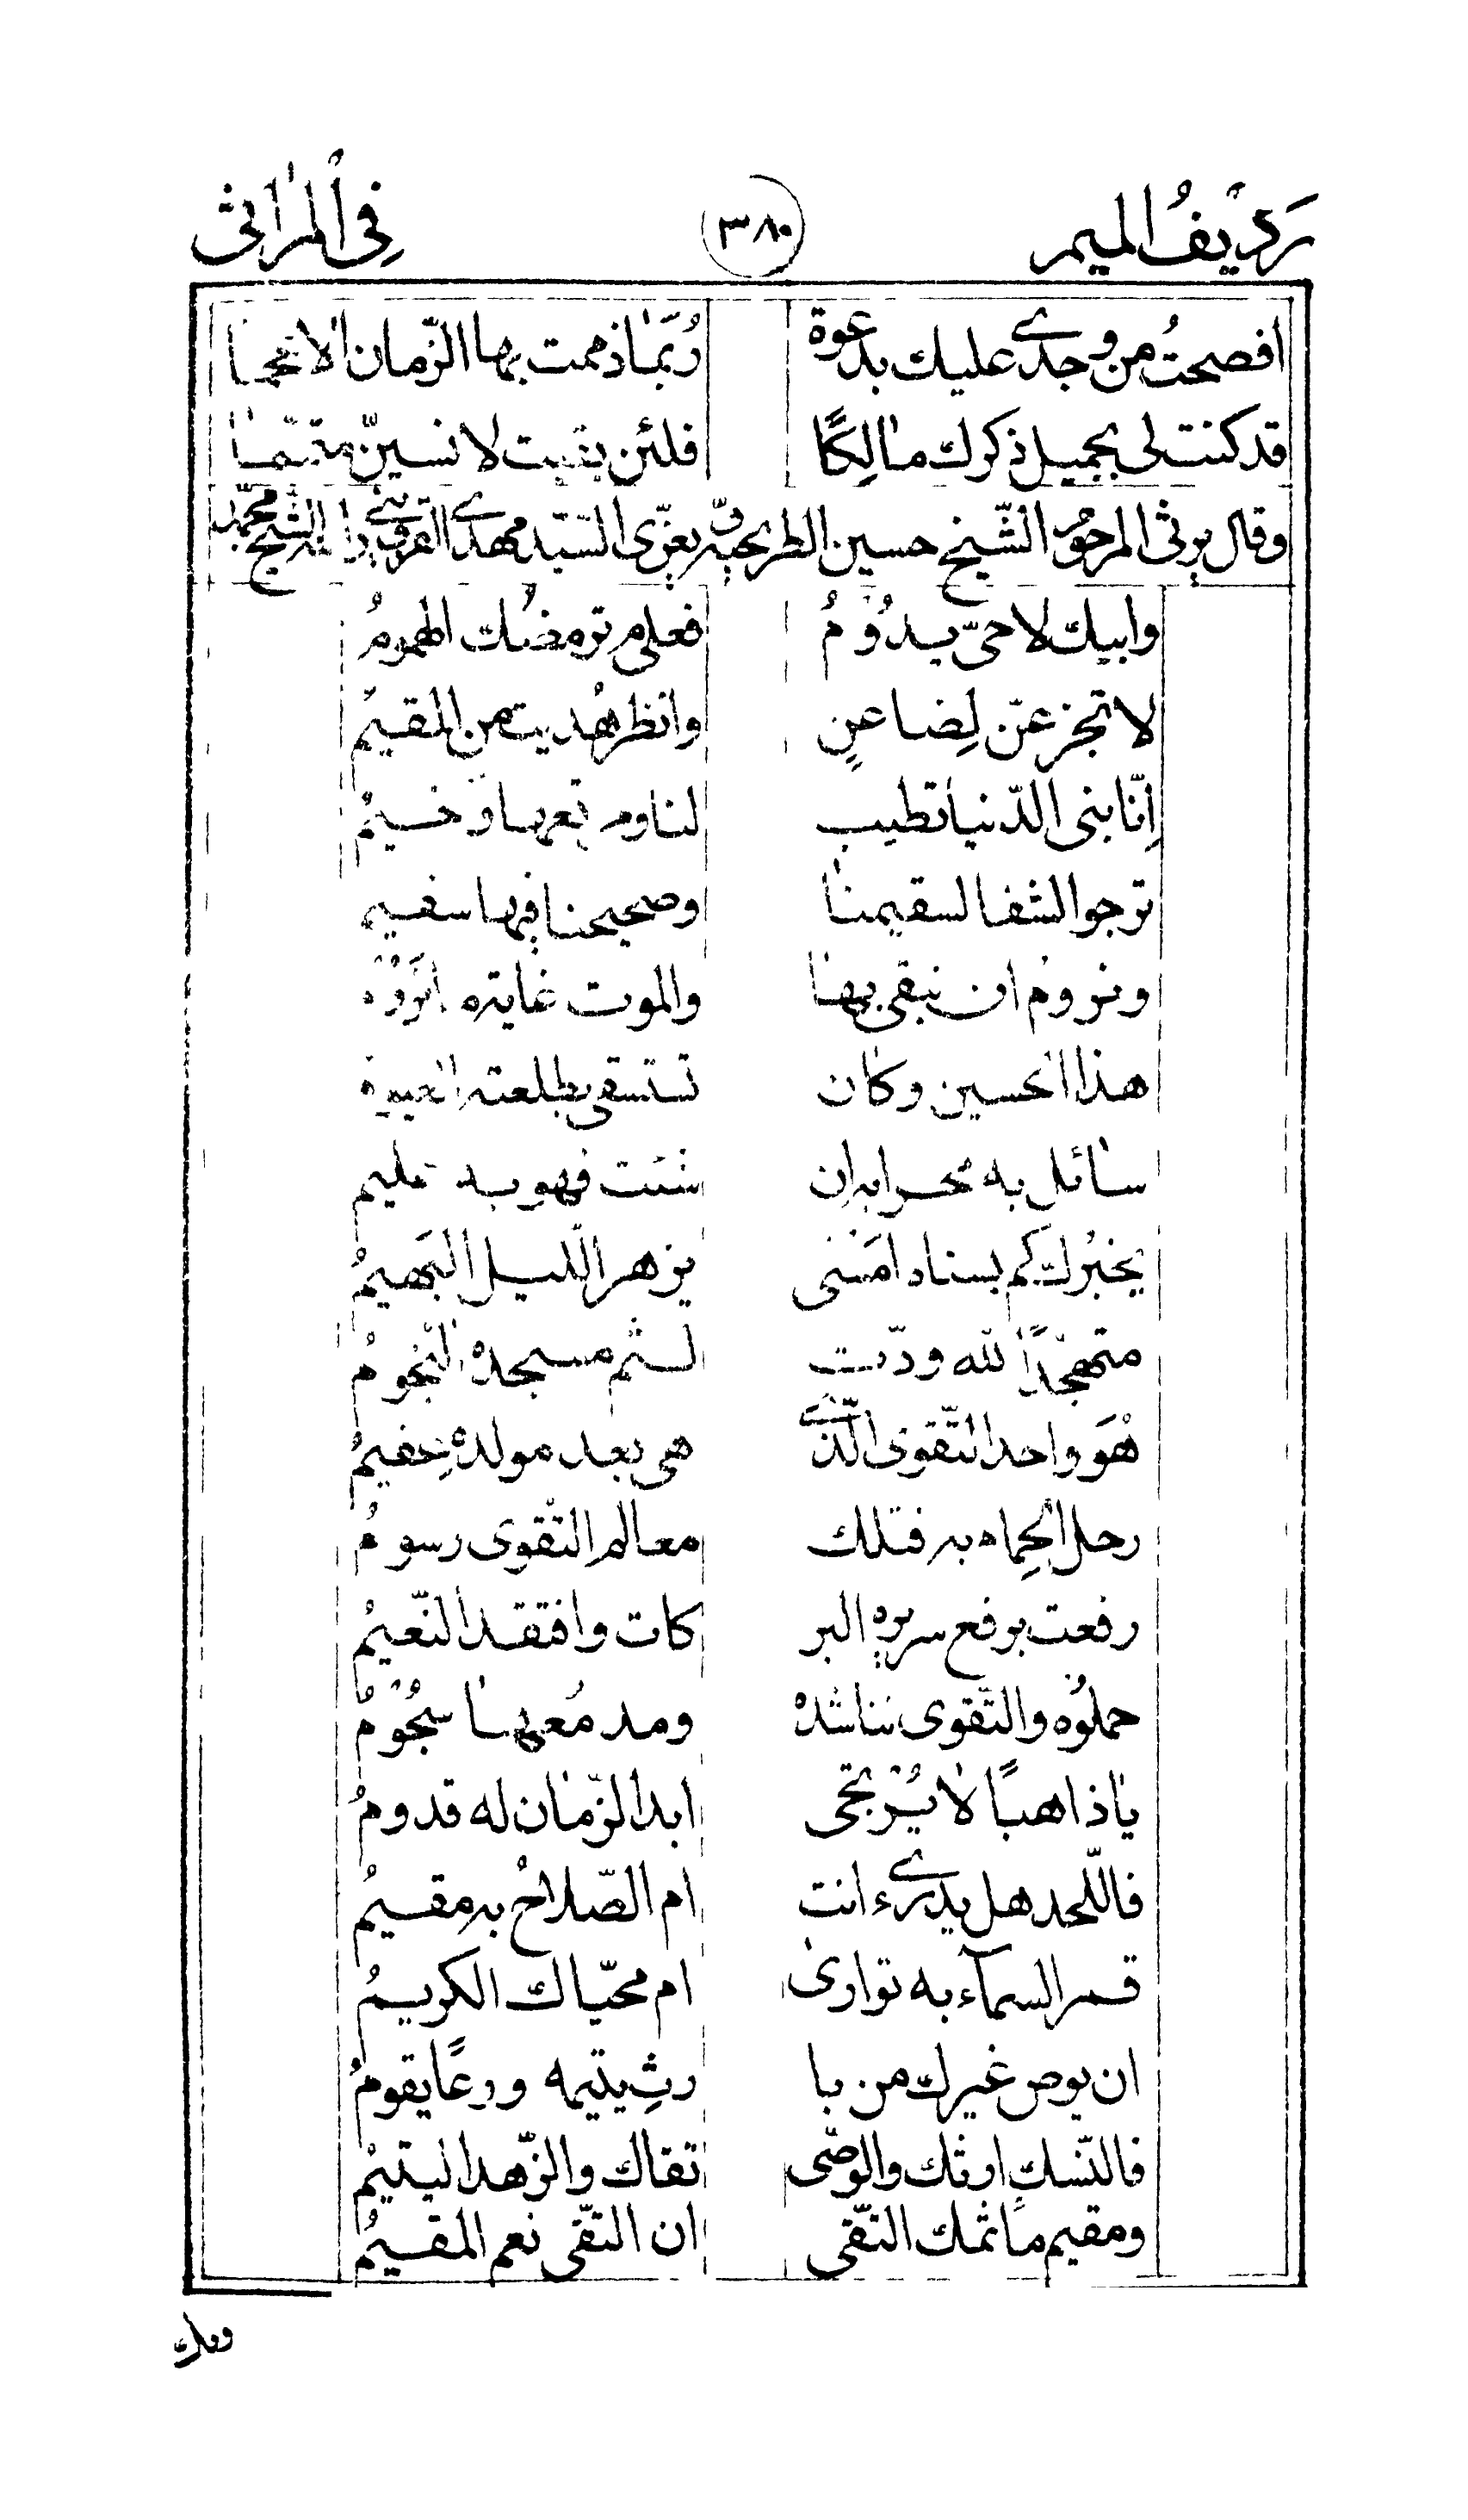 رَديْفُ الميم ٣٨٠ فِي الْمَرٰاثى
افصحتُ من وجدي عليك بدعوة رُبّمٰا ذممت بها الزّمان الاعجمٰا
قد كنت لى بجميل ذكرك مٰالِكًا فلئن بقيت لانسينّ متمّمٰا
وقال يرثى المرحوُم الشّيخ حسين الطريحيّ ويعزّى السّيّد مهدي القزوينيّ والشّيخ محمّد
وابيك لا حىّ يدُوْمُ فعلىم ترمضُك الهمومُ
لا تجزعنّ لِضاعنٍ وانظر هُديت من المقيمُ
اِنّا بنى الدّنيا تطيب لنا ومرتعها وخيمُ
نرجو الشفا لسقيمنٰا وصحيحنا فيها سقيم
ونرومُ ان نبقى بهٰا والموت غايته
هذا الحسين وكان تستسقى بطلعته الغيوم
سٰائل به محرابه ان شئت فهو به عليم
يخبرُك كم بسناه امَسْى يزهر اللّيل البَهيمُ
متهجّدًا لله ودّت لثم مسجدهْ النّجومُ
هُوَ واحد التّقوى الّذي هى بعد مولدهْ عقيمُ
رحل الحِمام به فتلك معالم التّقوى رسومُ
رفعت برفع سريره البر كات وافتقد النّعيمُ
حملوُه والتّقوى تناشده ومدمُعهٰا سُجُوْمُ
يٰا ذاهبًا لاٰ يُرْتجى ابد الزّمٰان له قدومُ
فاللّحد هل يدري ءانت ام الصّلاحُ به مقيمُ
قمر السمآء به توارىٰ ام محيّاك الكريمُ
ان يوص غيرك من با رثِ يتيمه ورعًا يقومُ
فالنّسك ارثك والوصّى تقاك والزّهد اليتيمُ
ومقيم مأتمك التّقى ان التّقى نعم المقيمُ